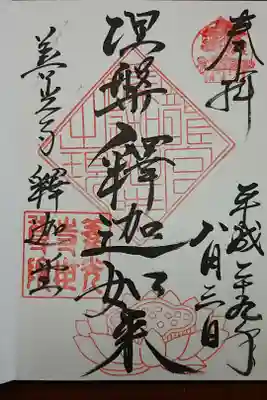 奉拝
平成二十九年
八月三日
涅槃釋迦如来
善光寺釋迦堂